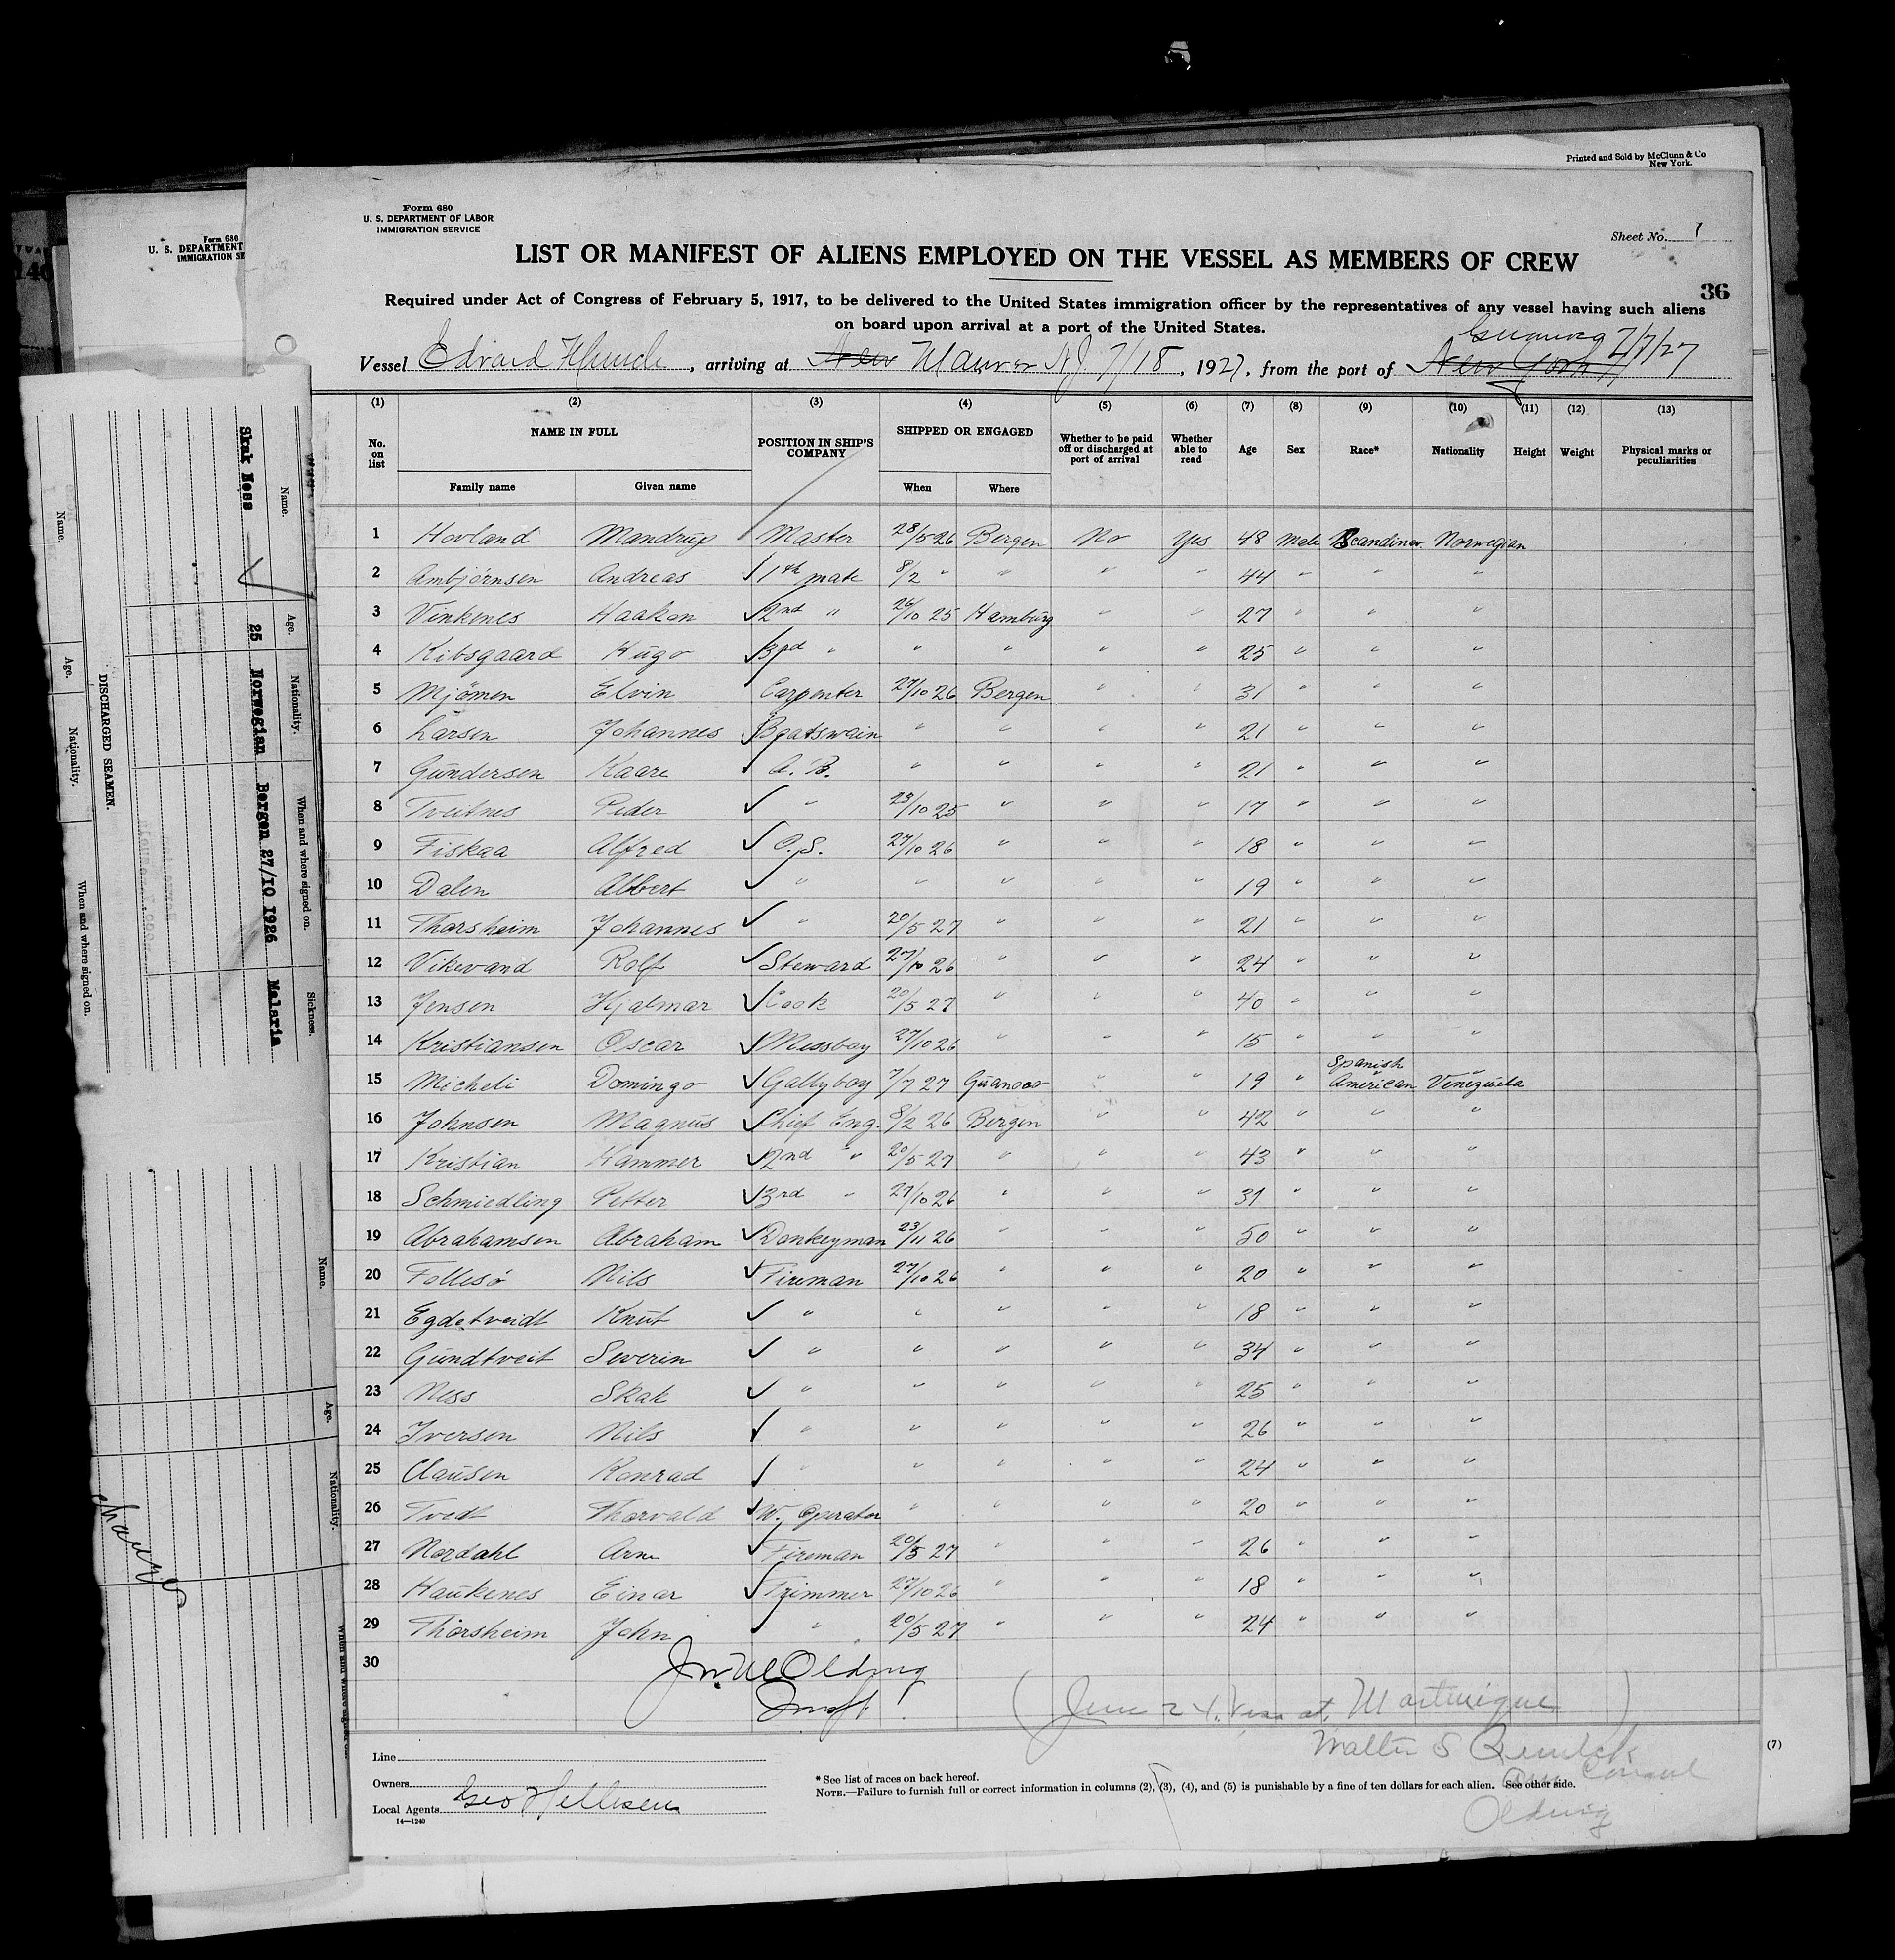 Printed and Sold by McClunn & Co
New York.
Form 680
U. S. DEPARTMENT OF LABOR
IMMIGRATION SERVICE
Sheet No. 1
LIST OR MANIFEST OF ALIENS EMPLOYED ON THE VESSEL AS MEMBERS OF CREW
36
Required under Act of Congress of February 5, 1917, to be delivered to the United States immigration officer by the representatives of any vessel having such aliens
on board upon arrival at a port of the United States.
Vessel Edvard Munch, arriving at New Maurer NJ 7/18, 1927, from the port of New York Guanoco 7/7/27
(1) (2) (3) (4) (5) (6) (7) (8) (9) (10) (11) (12) (13)
No. on list NAME IN FULL Family name Given name POSITION IN SHIP'S COMPANY SHIPPED OR ENGAGED When Where Whether to be paid off or discharged at port of arrival Whether able to read Age Sex Race* Nationality Height Weight Physical marks or peculiarities
1 Hovland Mandrup Master 28/5 26 Bergen No Yes 48 Male Scandinav. Norwegian
2 Ambjörnsen Andreas 1th mate 8/2 " " " " 44 " " "
3 Vinkenes Haakon 2nd " 26/10 25 Hamburg " " 27 " " "
4 Kibsgaard Hugo 3rd " " " " " 25 " " "
5 Mjömen Elvin Carpenter 27/10 26 Bergen " " 31 " " "
6 Larsen Johannes Boatswain " " " " 21 " " "
7 Gundersen Kaare A. B. " " " " 21 " " "
8 Tveitnes Peder " 23/10 25 " " " 17 " " "
9 Fiskaa Alfred O. S. 27/10 26 " " " 18 " " "
10 Dalen Albert " " " " " 19 " " "
11 Thorsheim Johannes " 20/5 27 " " " 21 " " "
12 Vikevand Rolf Steward 27/10 26 " " " 24 " " "
13 Jensen Hjalmar Cook 20/5 27 " " " 40 " " "
14 Kristiansen Oscar Messboy 27/10 26 " " " 15 " " "
15 Micheli Domingo Gallyboy 7/7 27 Guanoco " " 19 " Spanish American Venezuela
16 Johnsen Magnus Chief Eng. 8/2 26 Bergen " " 42 " " "
17 Kristian Hammer 2nd " 20/5 27 " " " 43 " " "
18 Schmiedling Petter 3rd " 27/10 26 " " " 31 " " "
19 Abrahamsen Abraham Donkeyman 23/11 26 " " " 50 " " "
20 Follesö Nils Fireman 27/10 26 " " " 20 " " "
21 Egdetveidt Knut " " " " " 18 " " "
22 Gundtveit Severin " " " " " 34 " " "
23 Ness Skak " " " " " 25 " " "
24 Iversen Nils " " " " " 26 " " "
25 Clausen Konrad " " " " " 24 " " "
26 Tvedt Thorvald W. Operator " " " " 20 " " "
27 Nordahl Arne Fireman 20/5 27 " " " 26 " " "
28 Haukenes Einar Trimmer 27/10 26 " " " 18 " " "
29 Thorsheim John " 20/5 27 " " " 24 " " "
30
Olding
Insp.
(June 24. Visa at. Martinique)
Walter S
Am Consul
Olding
(7)
Line
Owners
Local Agents Geo Hellesen
14—1240
*See list of races on back hereof.
NOTE.—Failure to furnish full or correct information in columns (2), (3), (4), and (5) is punishable by a fine of ten dollars for each alien. See other side.
Form 680
U. S. DEPARTMENT
IMMIGRATION SE
140
Name. Age. Nationality. When and where signed on. Sickness.
Skak Ness 25 Norwegian Bergen 27/10 1926 Malaria
DISCHARGED SEAMEN.
Name. Age. Nationality. When and where signed on.
Name. Age. Nationality. When and where signed on.
Maurer